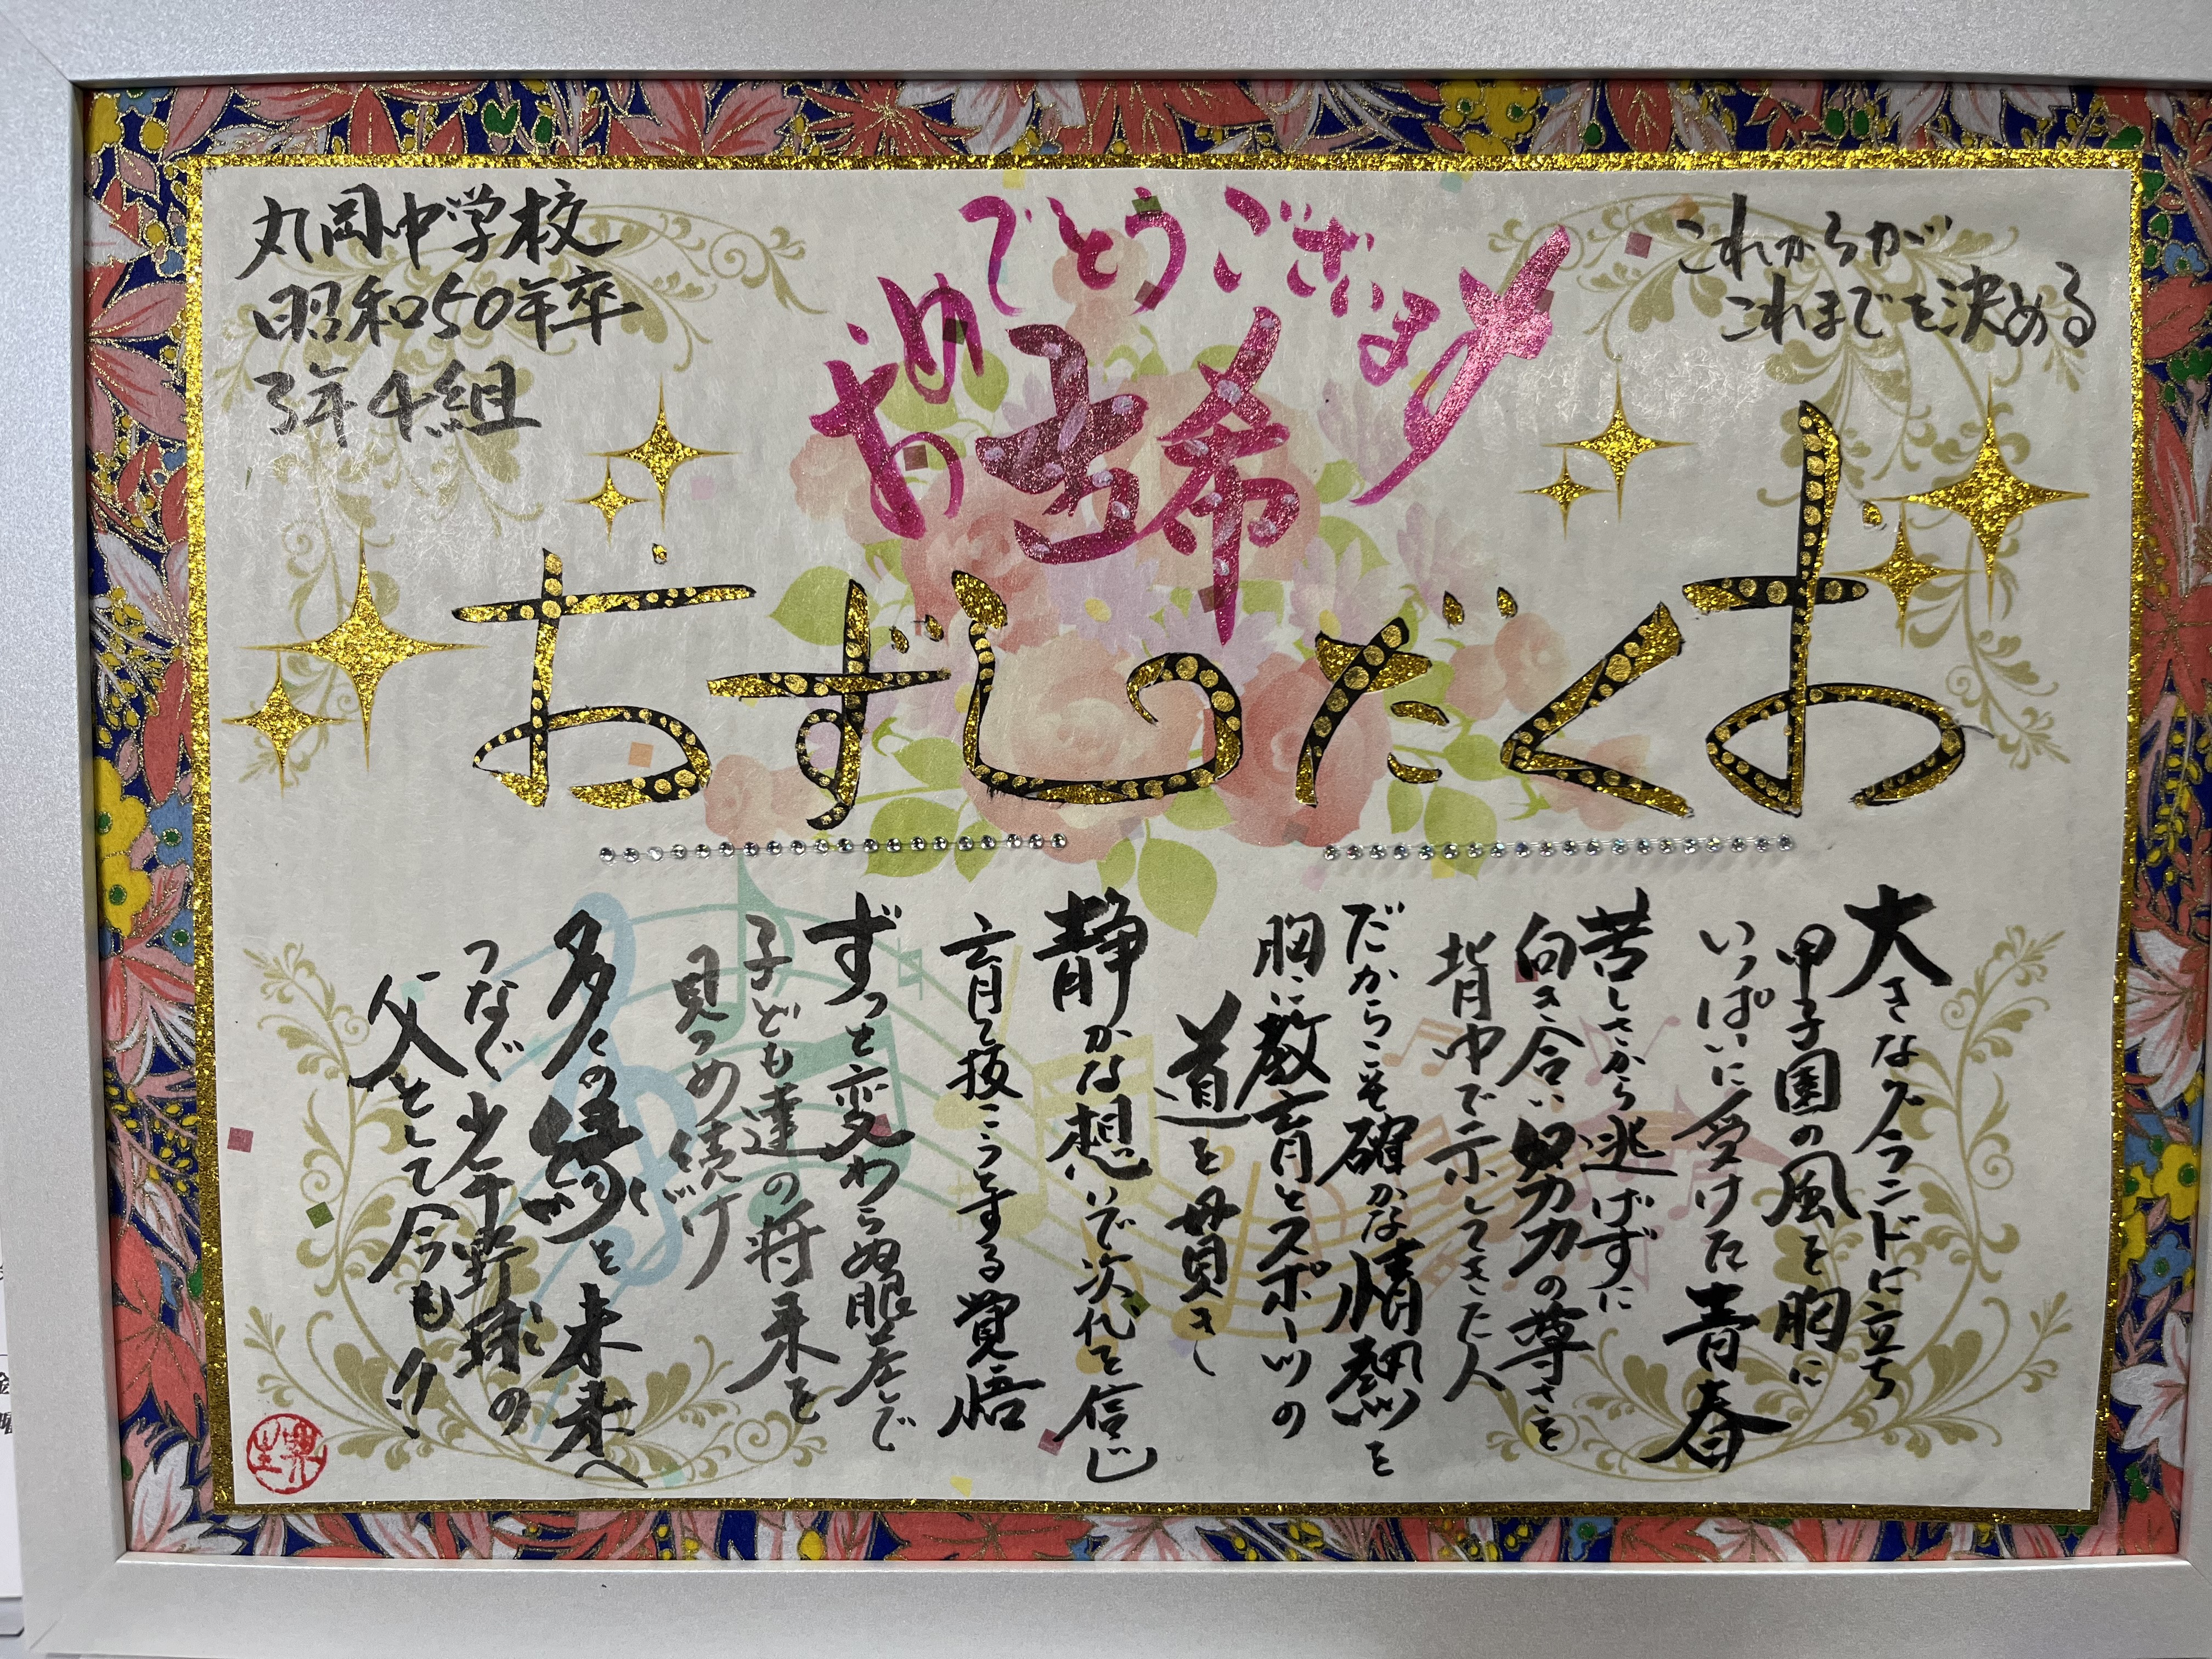 丸岡中学校
昭和50年卒
3年4組
古希
おめでとうございます
これからが
これまでを決める
おくだしずお
大きなグランドに立ち
甲子園の風を胸に
いっぱいに受けた青春
苦しさから逃げずに
向き合い努力の尊さを
背中で示してきた人
だからこそ確かな情熱を
胸に教育とスポーツの
道を貫き
静かな想いで次代を信じ
育て抜こうとする覚悟
ずっと変わらぬ眼差しで
子ども達の将来を
見つめ続け
多くの縁を未来へ
つなぐ少年野球の
父として今も!!